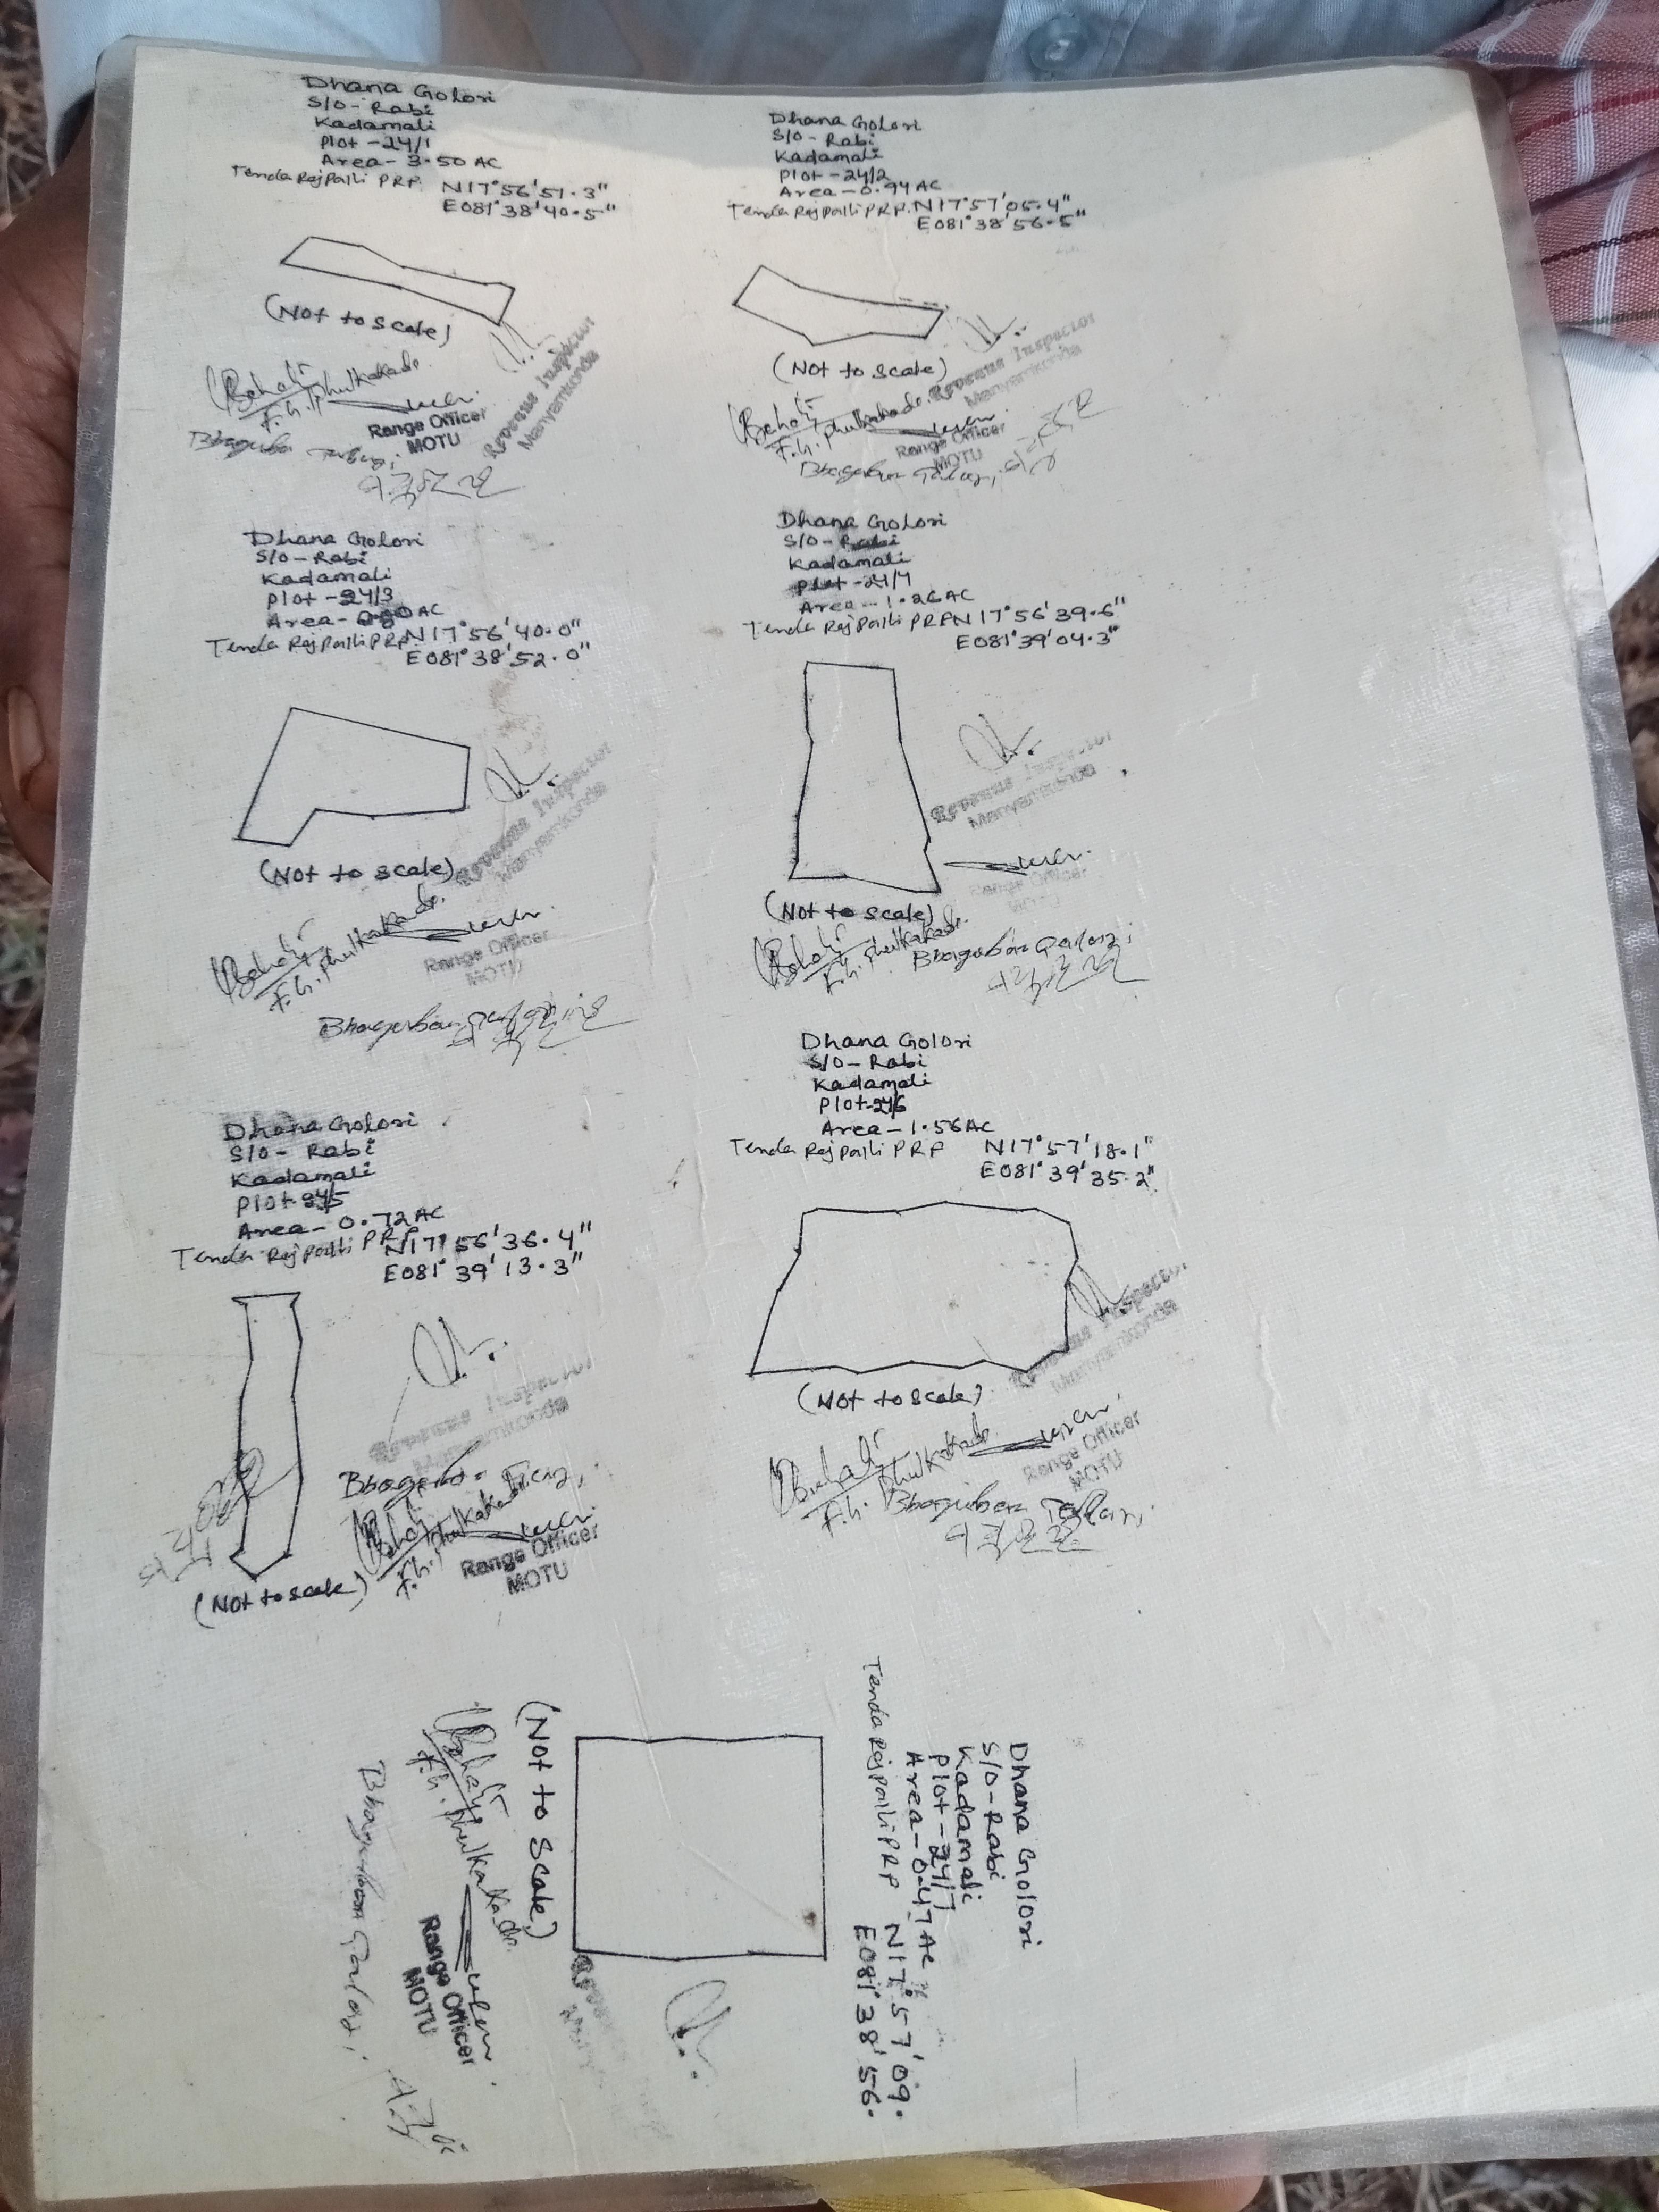 Dhana Golori
S/O- Rabi
Kadamali
Plot -24/1
Area- 3.50 AC
Tenda Rajpalli PRP. N17°56'51.3"
E081°38'40.5"
(Not to scale)
Range Officer
MOTU
Revenue Inspector
Manyamkonda
Dhana Golori
S/O- Rabi
Kadamali
Plot -24/2
Area -0.94 AC
Tenda Rajpalli PRP. N17°57'05.4"
E081°38'56.5"
(Not to scale)
Revenue Inspector
Manyamkonda
Range Officer
MOTU
Dhana Golori
S/O- Rabi
Kadamali
Plot -24/3
Area- AC
Tenda Rajpalli PRP. N17°56'40.0"
E081°38'52.0"
(Not to scale)
Revenue Inspector
Manyamkonda
Range Officer
MOTU
Dhana Golori
S/O- Rabi
Kadamali
Plot -24/4
Area - 1.26 AC
Tenda Rajpalli PRP N17°56'39.6"
E081°39'04.3"
Revenue Inspector
Manyamkonda
Range Officer
(Not to scale)
Bhagaban
Dhana Golori
S/O- Rabi
Kadamali
Plot-24/5
Area- 0.72 AC
Tenda Rajpalli PRP N17°56'36.4"
E081°39'13.3"
Revenue Inspector
Manyamkonda
Range Officer
MOTU
(Not to scale)
Dhana Golori
S/O- Rabi
Kadamali
Plot-24/6
Area- 1.56 AC
Tenda Rajpalli PRP N17°57'18.1"
E081°39'35.2"
Revenue Inspector
Manyamkonda
(Not to scale)
Range Officer
MOTU
Dhana Golori
S/O- Rabi
Kadamali
Plot - 24/7
Area- 0.47 AC
Tenda Rajpalli PRP N17°57'09.
E081°38'56.
(Not to scale)
Range Officer
MOTU